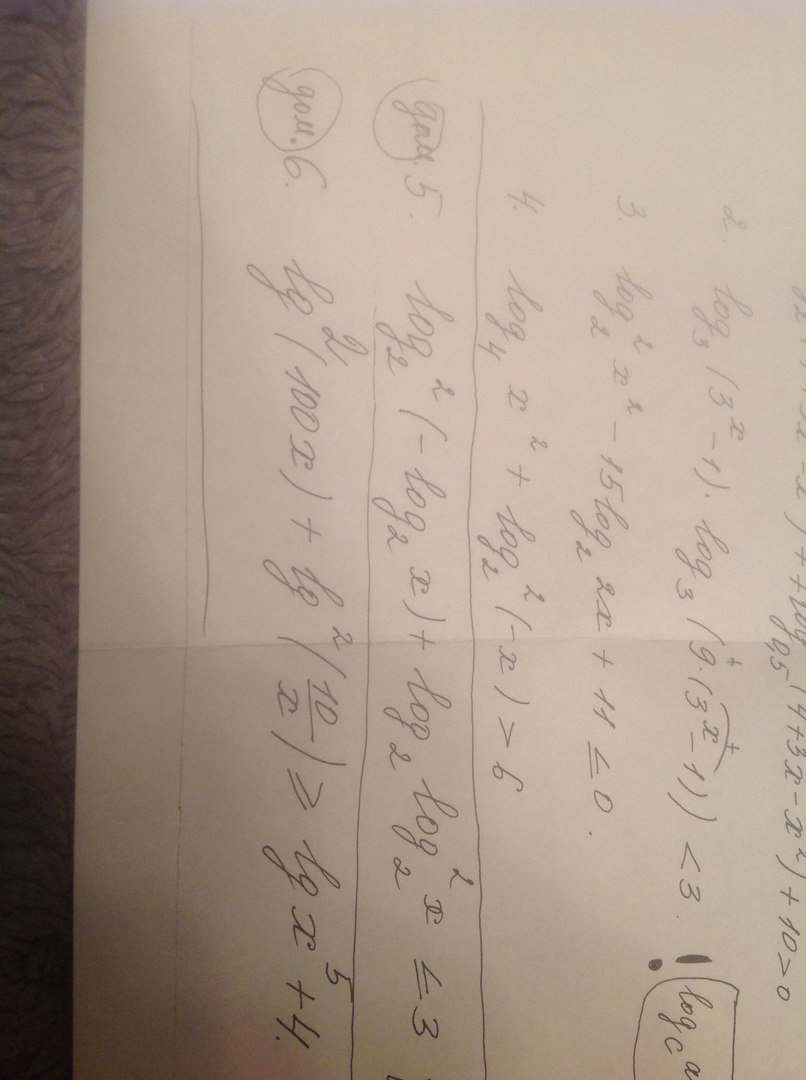 (4+3x-x²)+10>0
2. log₃(3ˣ-1)·log₃(9·(3ˣ-1))<3. !
log_c a
3. log₂²x²-15log₂2x+11≤0.
4. log₄x²+log₂²(-x)>6
дом. 5. log₂²(-log₂x)+log₂log₂²x≤3
дом. 6. lg²(100x)+lg²(10/x)≥lgx⁵+4.